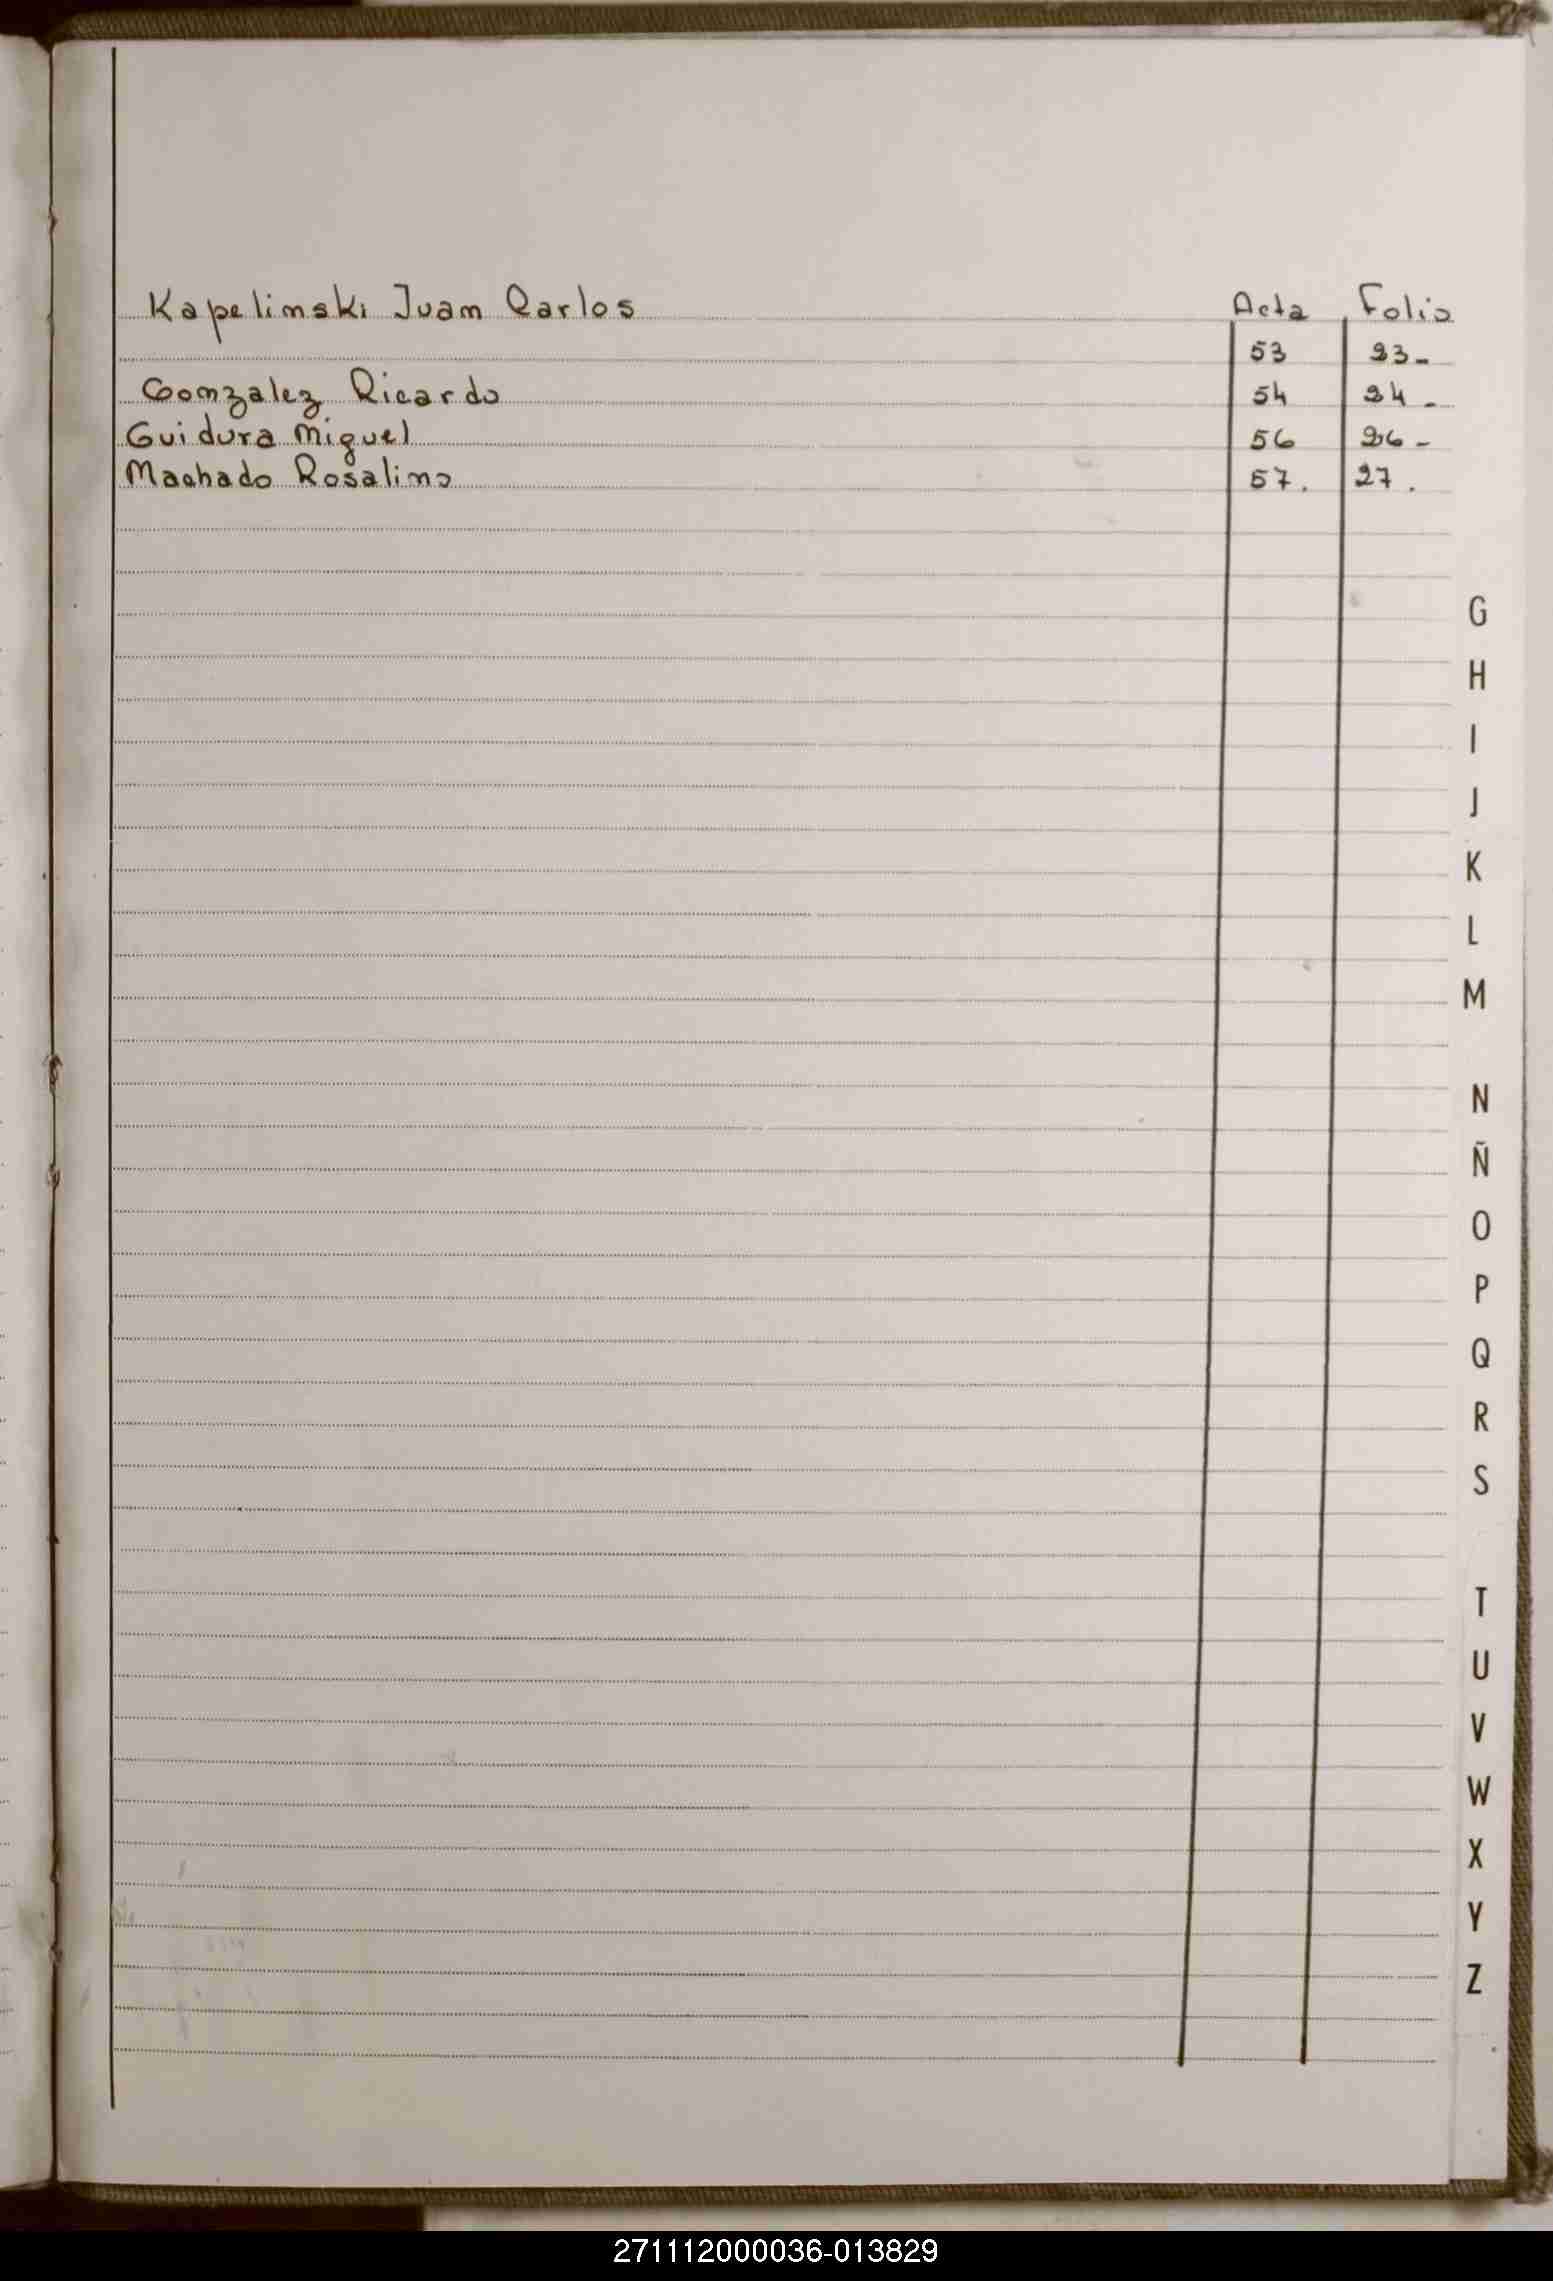 Kapelinski Juan Carlos Acta Folio
53 23-
Gonzalez Ricardo 54 24-
Guidura Miguel 56 26-
Machado Rosalino 57. 27.
G
H
I
J
K
L
M
N
Ñ
O
P
Q
R
S
T
U
V
W
X
Y
Z
271112000036-013829